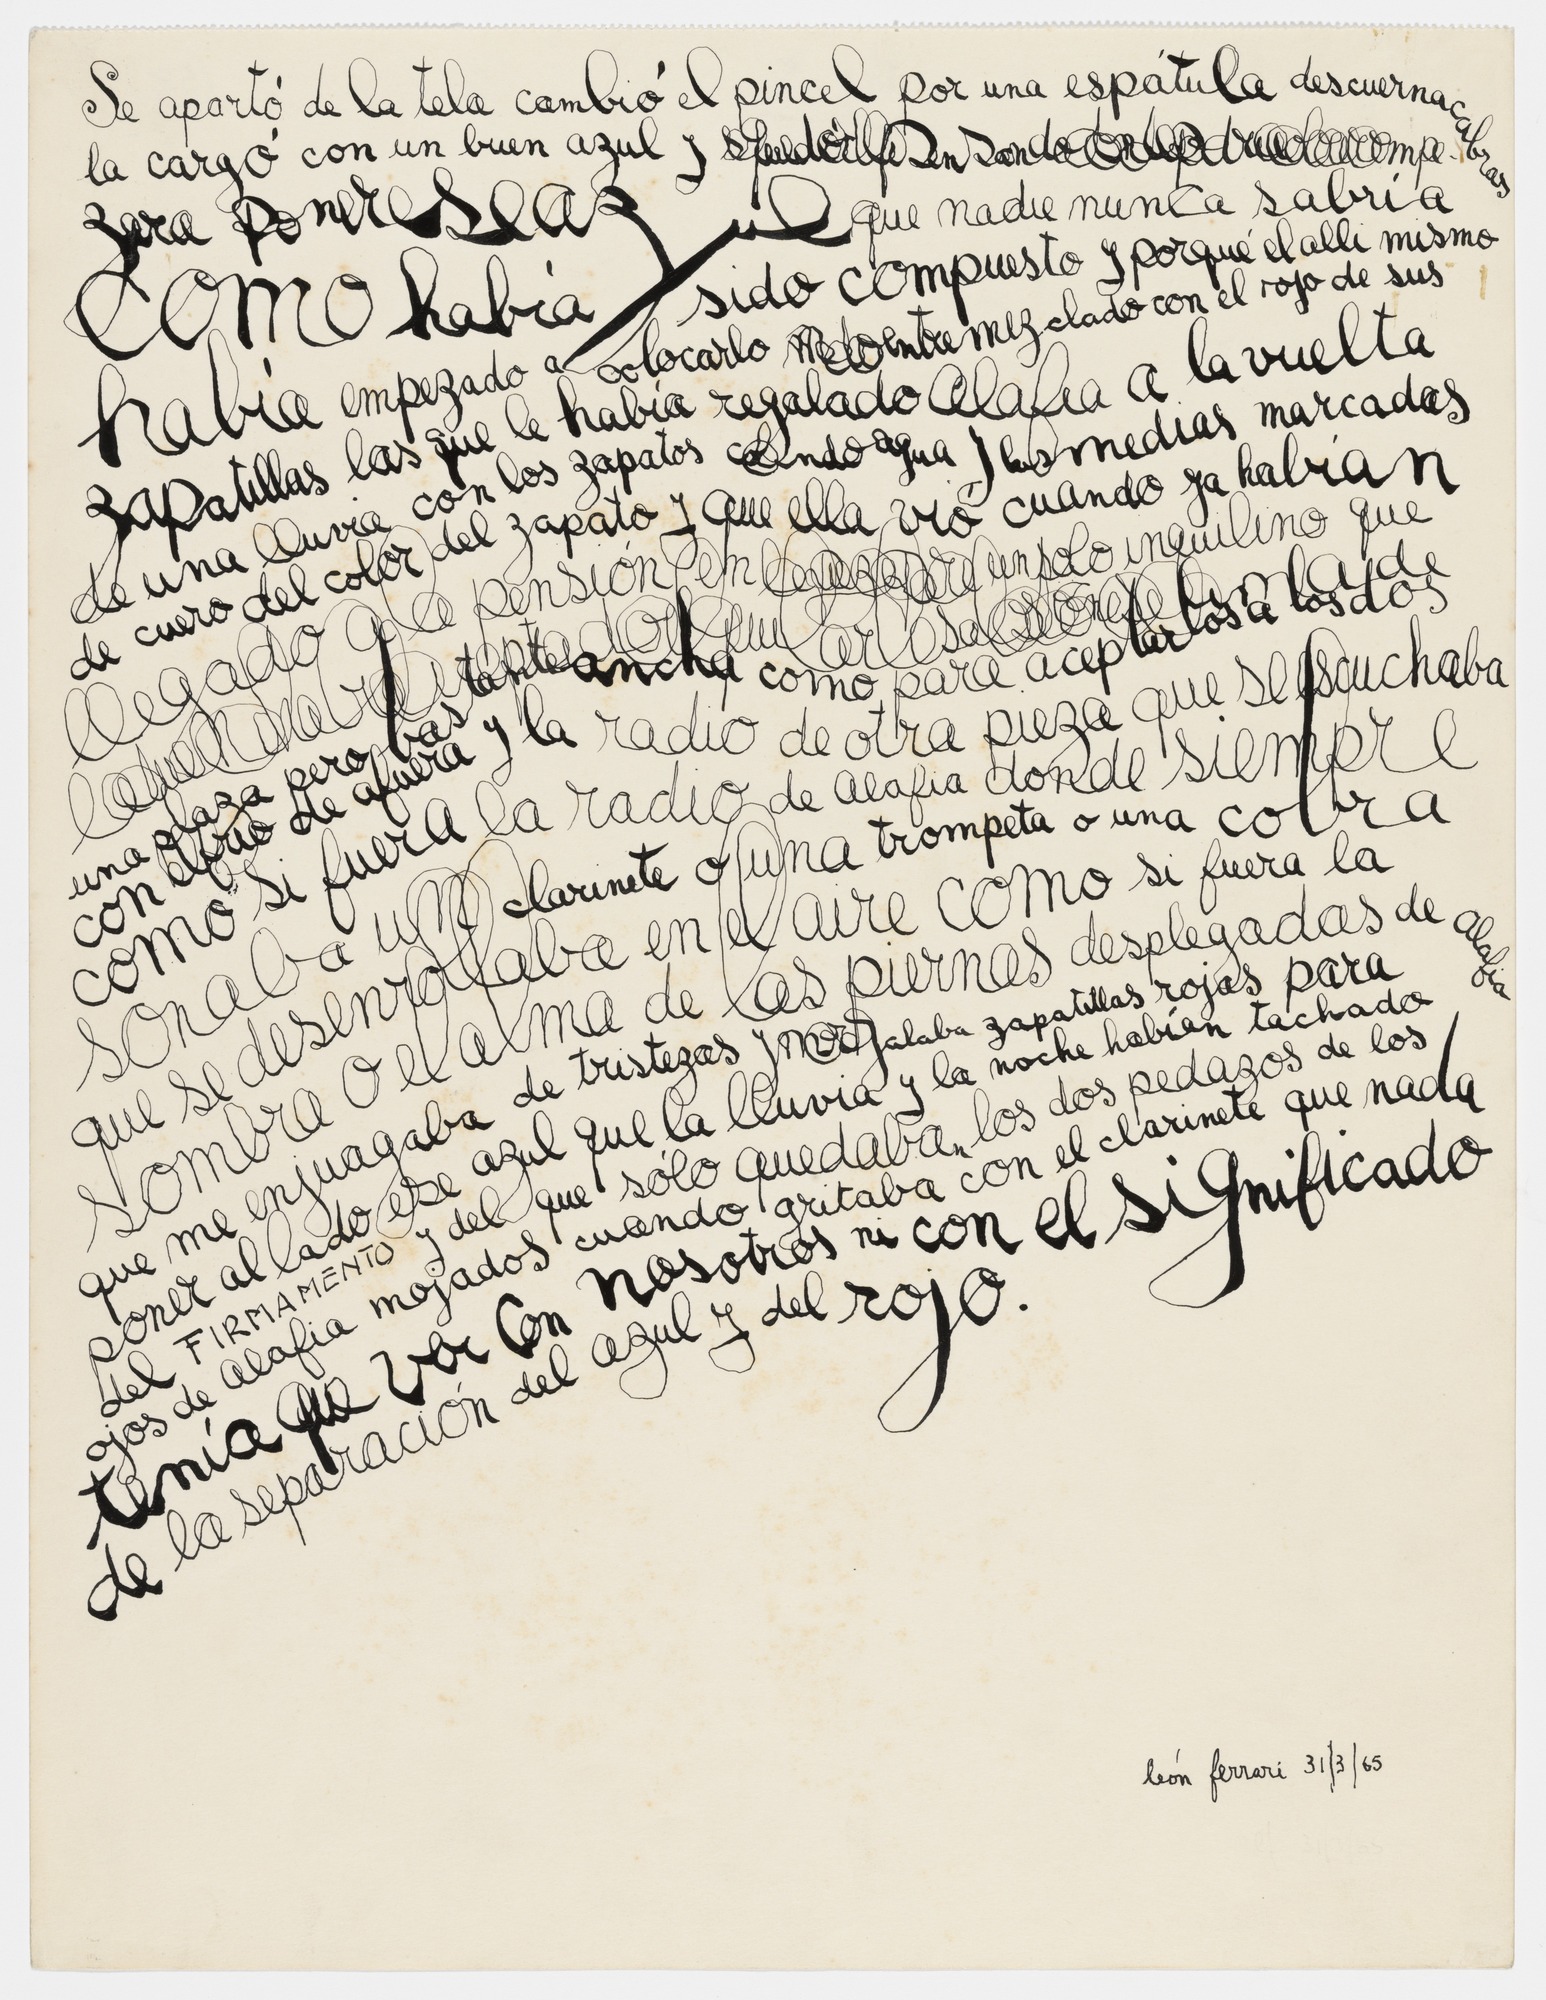 Se apartó de la tela cambió el pincel por una espátula descuernacabras
la cargó con un buen azul y se quedó pensando empe-
zara poner ese azul que nadie nunca sabría
como había sido compuesto y porqué el alli mismo
había empezado a colocarlo entremezclado con el rojo de sus
zapatillas las que le había regalado alafia a la vuelta
de una lluvia con los zapatos agua y las medias marcadas
de cuero del color del zapato y que ella vió cuando ya habían
llegado a la pensión un solo inquilino que
una plaza pero bastante ancha como para aceptarlos a los dos
con el frio de afuera y la radio de otra pieza que se escuchaba
como si fuera la radio de alafia donde siempre
sonaba un clarinete o una trompeta o una cobra
que se desenrollaba en el aire como si fuera la
sombra o el alma de las piernas desplegadas de alafia
que me enjuagaba de tristezas y me regalaba zapatillas rojas para
poner al lado ese azul que la lluvia y la noche habían tachado
del FIRMAMENTO y del que sólo quedaban los dos pedazos de los
ojos de alafia mojados cuando gritaba con el clarinete que nada
tenía que ver con nosotros ni con el significado
de la separación del azul y del rojo.
león ferrari 31/3/65